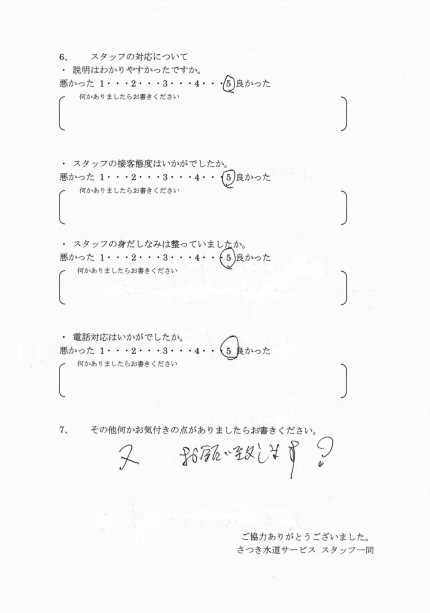 6、 スタッフの対応について
・ 説明はわかりやすかったですか。
悪かった 1・・・2・・・3・・・4・・・5 良かった
何かありましたらお書きください
・ スタッフの接客態度はいかがでしたか。
悪かった 1・・・2・・・3・・・4・・・5 良かった
何かありましたらお書きください
・ スタッフの身だしなみは整っていましたか。
悪かった 1・・・2・・・3・・・4・・・5 良かった
何かありましたらお書きください
・ 電話対応はいかがでしたか。
悪かった 1・・・2・・・3・・・4・・・5 良かった
何かありましたらお書きください
7、 その他何かお気付きの点がありましたらお書きください。
又 お願い致します
ご協力ありがとうございました。
さつき水道サービス スタッフ一同